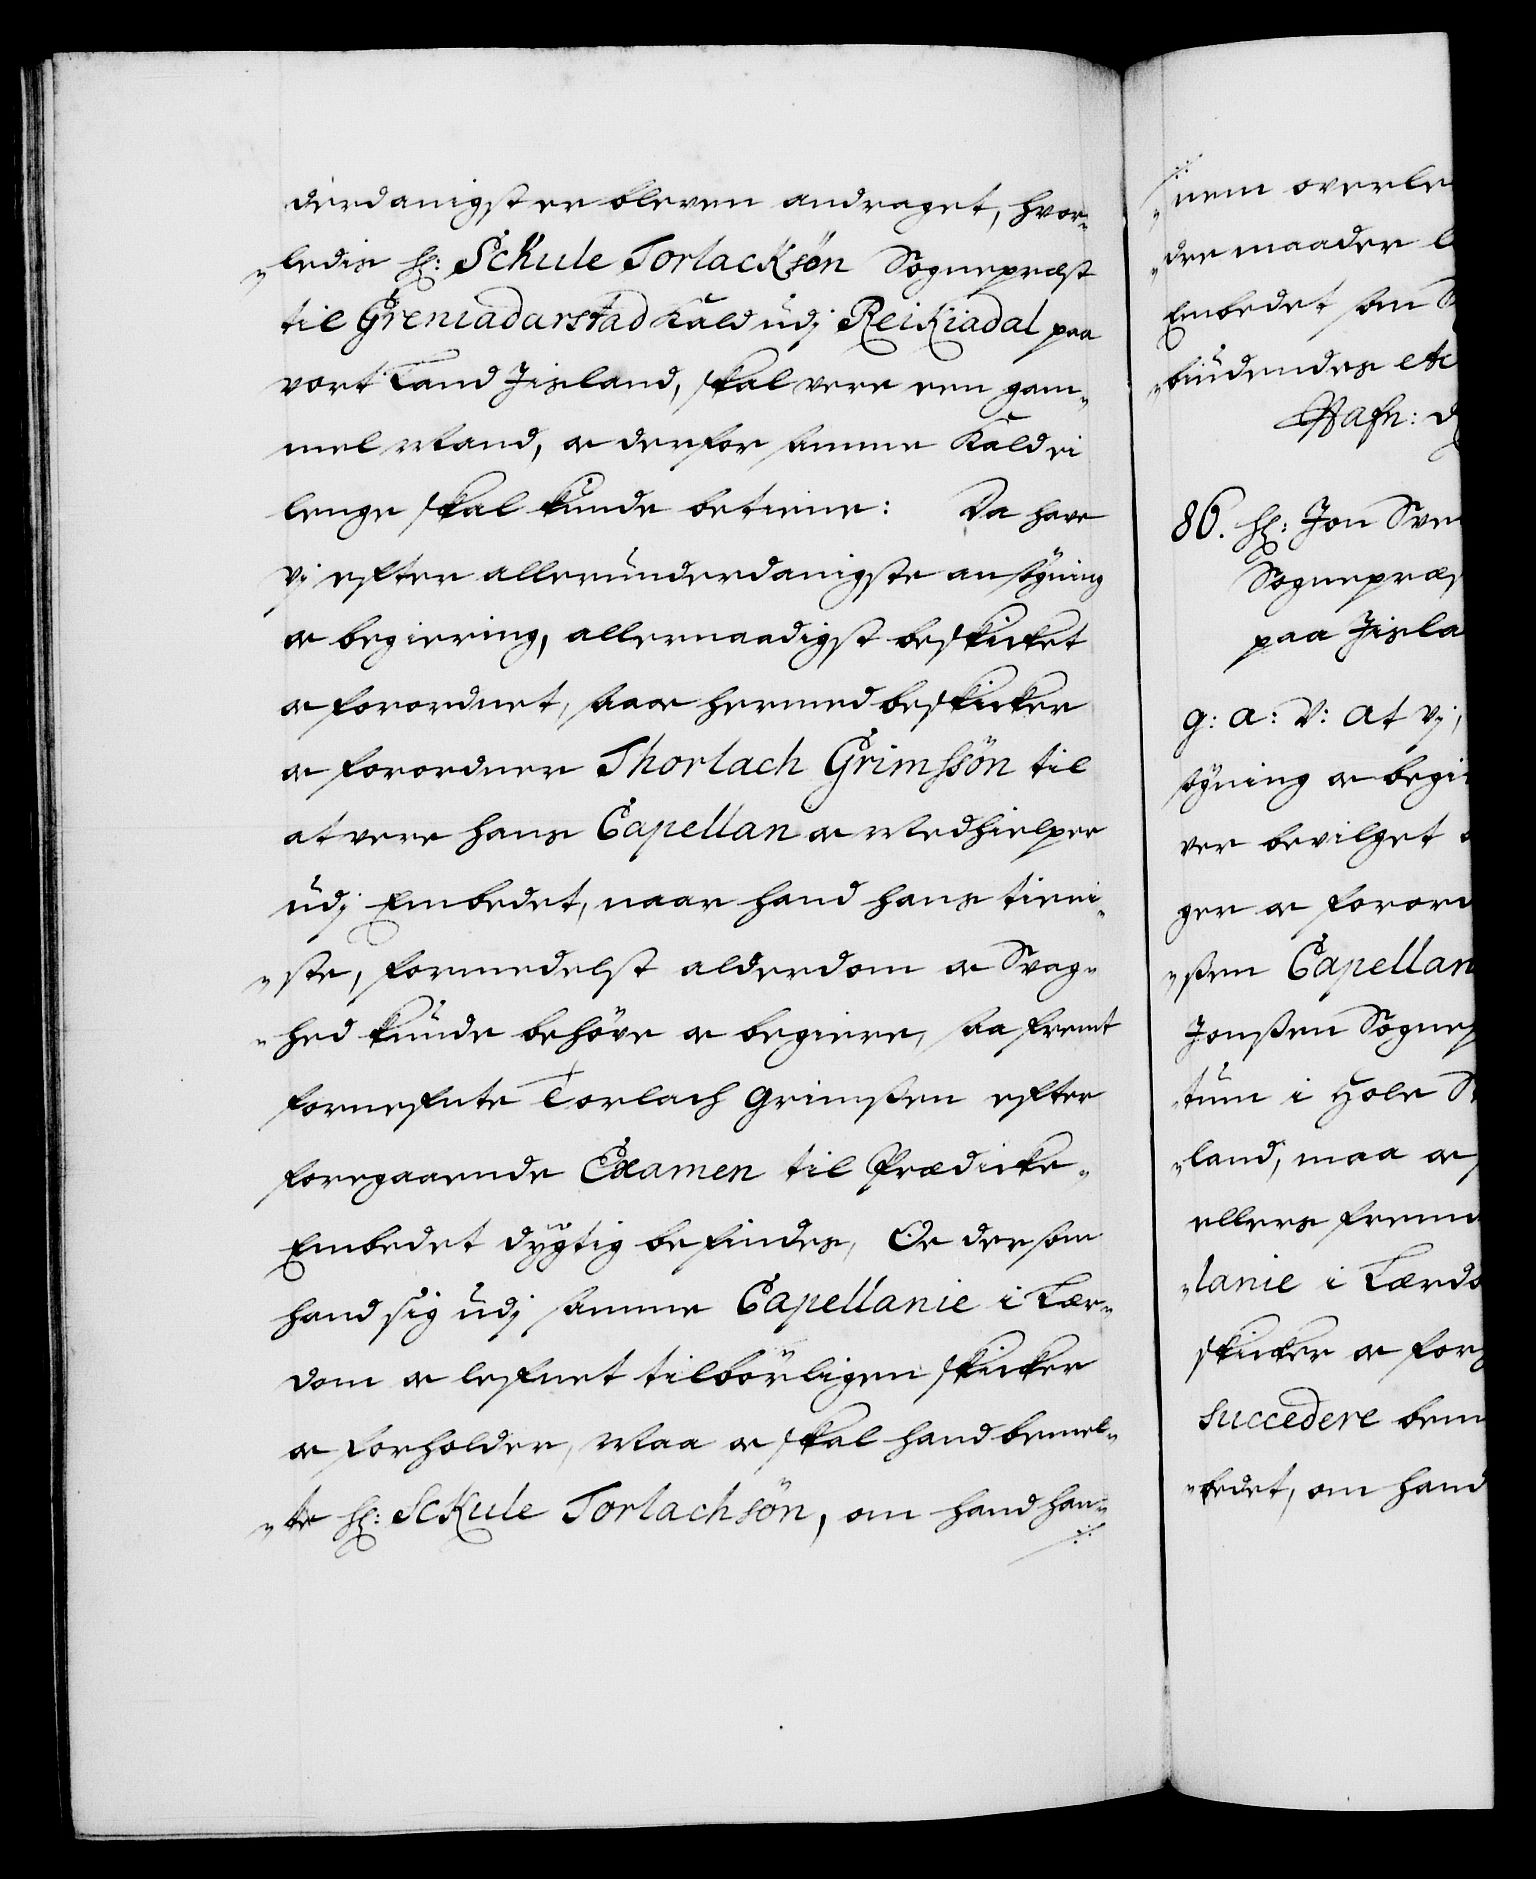 derdanigst er bleven andraget, hvor-
ledis hr: Schule Torlacksön Sognepræst
til Greniadarstad Kald udj Reikiadal paa
vort Land Jisland, skal vere een gam-
mel Mand, oc derfor samme Kald ei
lenge skal kunde betiene: Da have
vj efter allerunderdanigste ansögning
oc begiering, allernaadigst beskicket
oc forordnet, saa oc hermed beskicker
oc forordner Thorlach Grimssön til
at vere hans Capellan oc Medhielper
udj Embedet, naar hand hans tieni-
ste, formedelst alderdom oc Svag-
hed kunde behöve oc begiere, saafremt
fornefnte Torlach Grimssen efter
foregaaende Examen til Prædicke-
Embedet dygtig befindes, Oc dersom
hand sig udj samme Capellanie i Lær-
dom oc lefnet tilbörligen skicker
oc forholder, Maa oc skal hand bemel-
te hr: Schule Torlachsön, om hand han-
nem overle
dre maader
Embedet som
biudendes etc
Hafn: d
86. hr: Jon Sve
Sognepræs
paa Jisla
g: a: V: at vj,
sögning oc begi
ver bevilget
ger oc forord
ssen Capellan
Jonssen Sognep
tum i Hole
land, maa oc
ellers frem
lanie i Lærdo
skicker oc forh
succedere bem
bedet, om hand